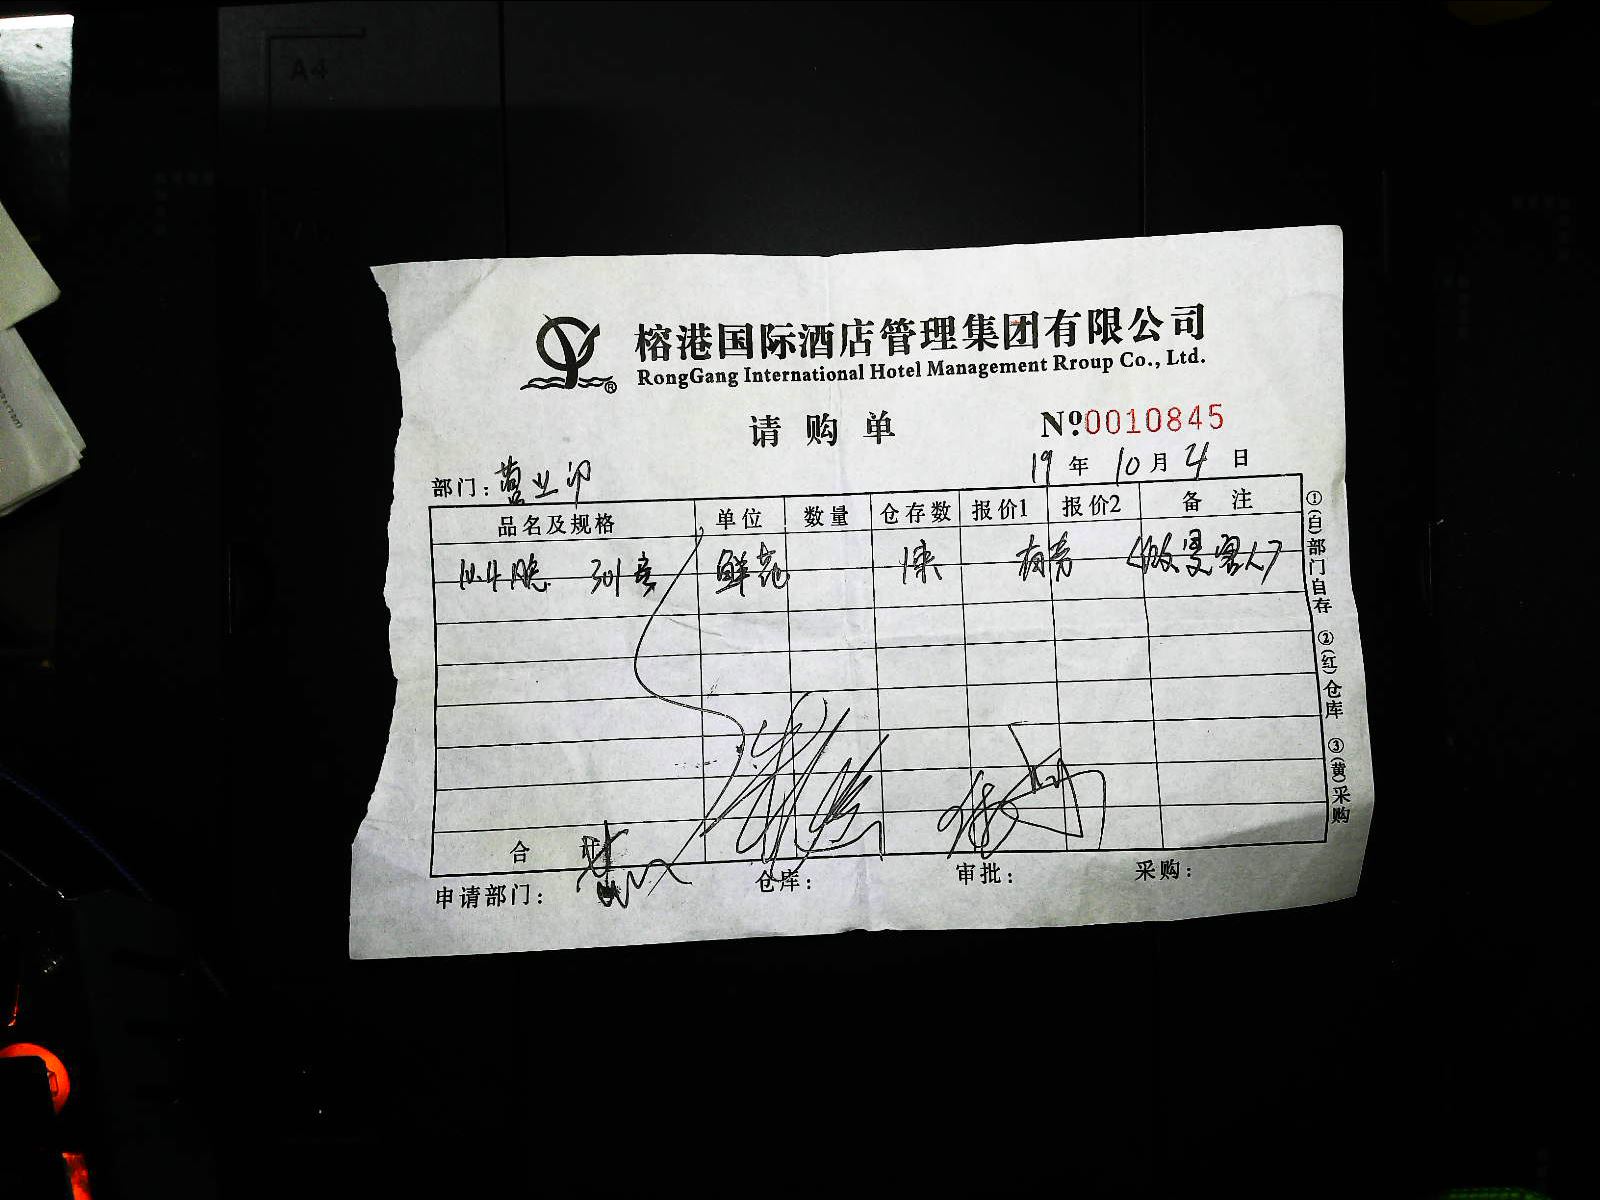 A4
榕港国际酒店管理集团有限公司
RongGang International Hotel Management Rroup Co., Ltd.
请购单 №0010845
19年10月4日
部门:营业部
品名及规格 单位 数量 仓存数 报价1 报价2 备注
301 鲜花 1束
合计
申请部门: 仓库: 审批: 采购:
①(白)部门自存 ②(红)仓库 ③(黄)采购